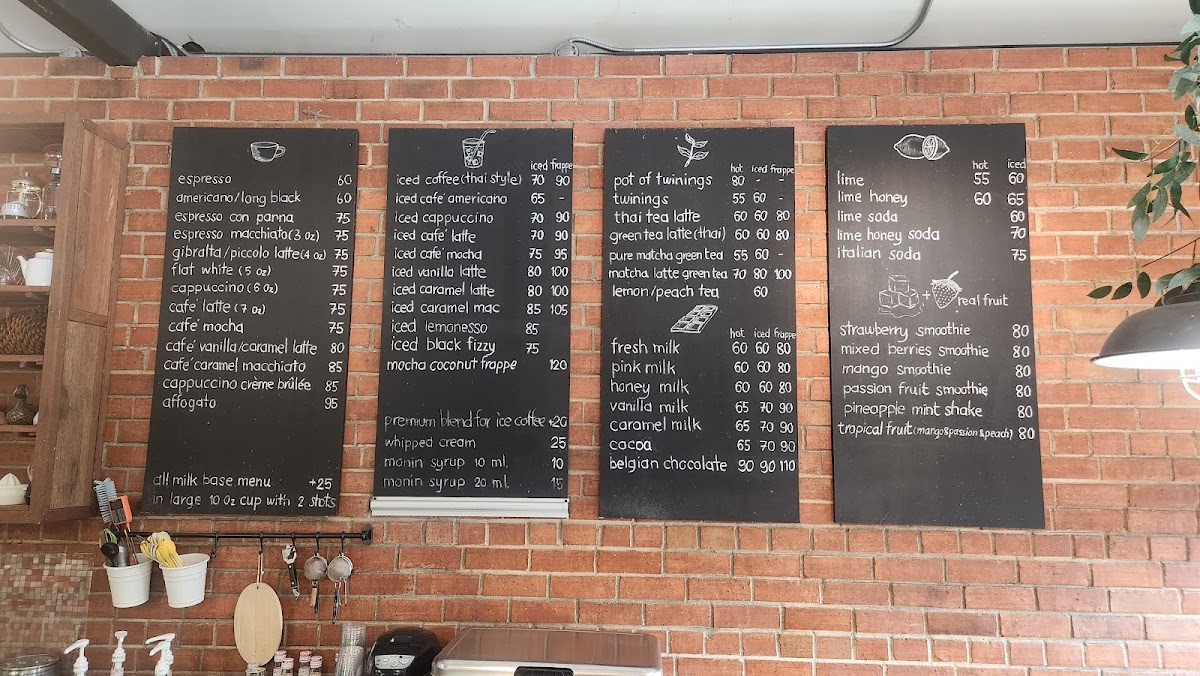 espresso 60
americano/long black 60
espresso con panna 75
espresso macchiato (3 oz) 75
gibralta/piccolo latte (4 oz) 75
flat white (5 oz) 75
cappuccino (6 oz) 75
café latte (7 oz) 75
café mocha 75
café vanilla/caramel latte 80
café caramel macchiato 85
cappuccino crème brûlée 85
affogato 95
all milk base menu +25
in large 10 oz cup with 2 shots
iced frappe
iced coffee (thai style) 70 90
iced café americano 65 -
iced cappuccino 70 90
iced café latte 70 90
iced café mocha 75 95
iced vanilla latte 80 100
iced caramel latte 80 100
iced caramel mac 85 105
iced lemonesso 85
iced black fizzy 75
mocha coconut frappe 120
premium blend for ice coffee +20
whipped cream 25
monin syrup 10 ml. 10
monin syrup 20 ml. 15
hot iced frappe
pot of twinings 80 - -
twinings 55 60 -
thai tea latte 60 60 80
green tea latte (thai) 60 60 80
pure matcha green tea 55 60 -
matcha latte green tea 70 80 100
lemon/peach tea 60
hot iced frappe
fresh milk 60 60 80
pink milk 60 60 80
honey milk 60 60 80
vanilla milk 65 70 90
caramel milk 65 70 90
cocoa 65 70 90
belgian chocolate 90 90 110
hot iced
lime 55 60
lime honey 60 65
lime soda 60
lime honey soda 70
italian soda 75
+ real fruit
strawberry smoothie 80
mixed berries smoothie 80
mango smoothie 80
passion fruit smoothie 80
pineapple mint shake 80
tropical fruit (mango&passion&peach) 80